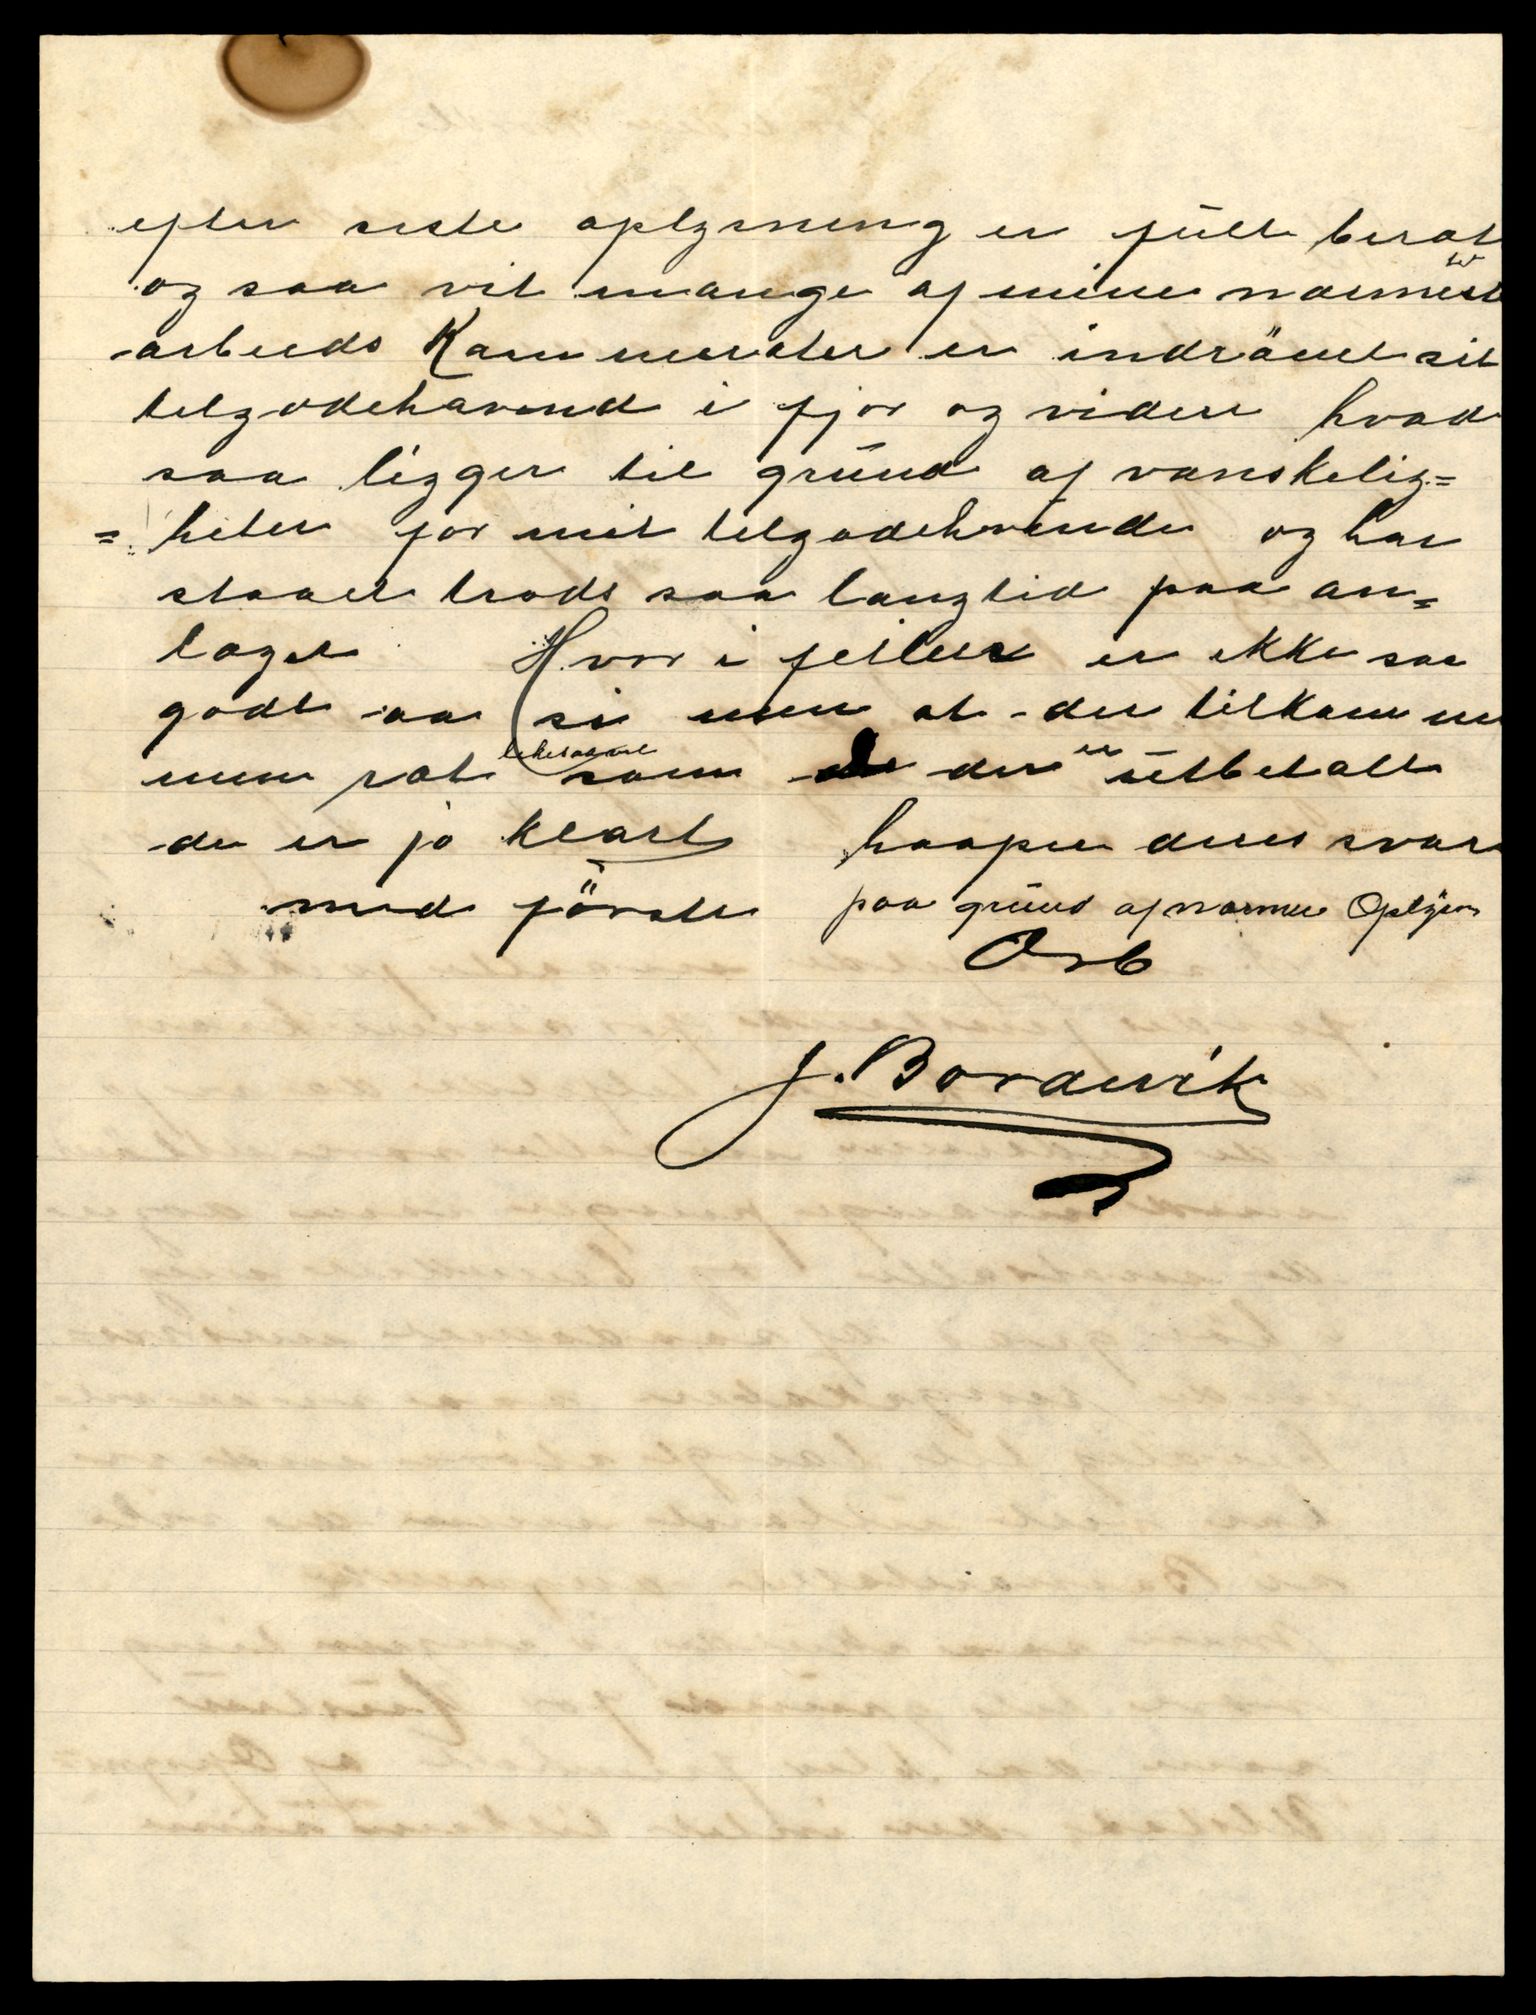 efter siste oplysning er fült berat
og saa vit mange af mine nærmeste
arbeids Kammerater er indrömt sit
tilgodehavend i fjor og videre hvad
saa ligger til gründ af vanskelig=
= heter for mit tilgodehvende og har
staaet trods saa langtid paa an=
laget Hvor i feilen er ikke saa
godt aa si men at der tilkommer
men rat som der er ütbetalt
de er jo klart haaper deres svar
med förste paa gründ af nærmere Oplysn
Ærb
J. Bordewik